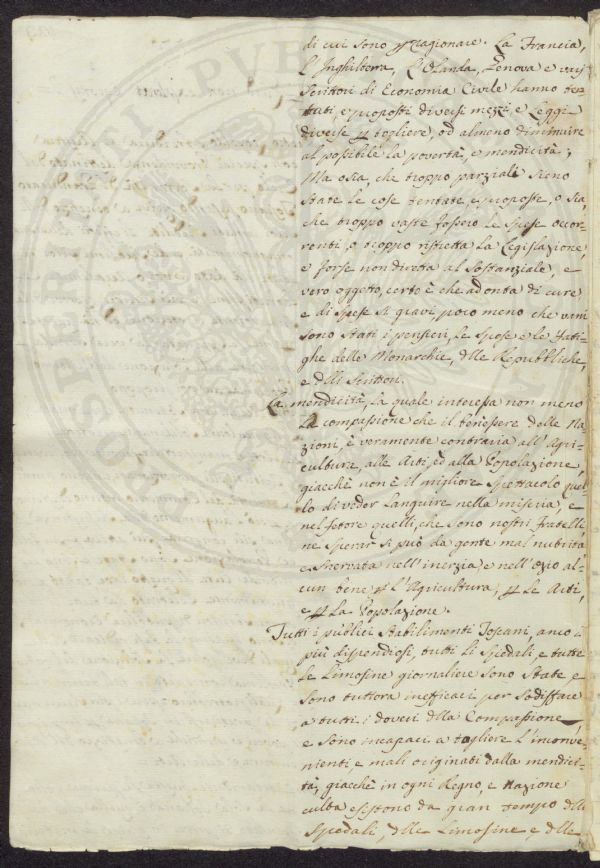 di cui sono p cagionare. La Francia,
l'Inghilterra, l'Olanda, Genova e varj
Scrittori di Economia Civile hanno ten
tati, e proposti diversi mezzi, e Leggi
diverse p togliere, od almeno diminuire
al possibile la povertà, e mendicità;
Ma o sia, che troppo parziali sieno
state le cose tentate, e proposte, o sia,
che troppo vaste fossero le spese occor-
renti, o troppo ristretta la Legislazione,
e forse non diretta al Sostanziale, e
vero oggetto, certo è che ad onta di cure
e di spese sì gravi, poco meno che vani
sono stati i pensieri, le spese e le fati-
ghe delle Monarchie, dlle Repubbliche,
e dlli Scrittori.
La mendicità, la quale interessa non meno
la compassione che il benessere delle Na
zioni, è veramente contraria all'Agri-
cultura, alle Arti, ed alla Popolazione,
giacchè non è il migliore spettacolo quel-
lo di veder languire nella miseria, e
nel fetore quelli, che sono nostri fratelli,
ne sperar si può da gente mal nutrita
e snervata nell'inerzia, e nell'ozio al-
cun bene p l'Agricultura, p le Arti,
e p la Popolazione.
Tutti i publici stabilimenti Toscani, anco i
più dispendiosi, tutti li Spedali, e tutte
le Limosine giornaliere sono state e
sono tuttora inefficaci per sodisfare
a tutti i doveri dlla Compassione,
e sono incapaci a togliere l'inconve-
nienti, e mali originati dalla mendici-
tà, giacchè in ogni Regno, e Nazione
culta esistono da gran tempo dlli
Spedali, dlle Limosine e dlle
PROSPERITATI PVBLI